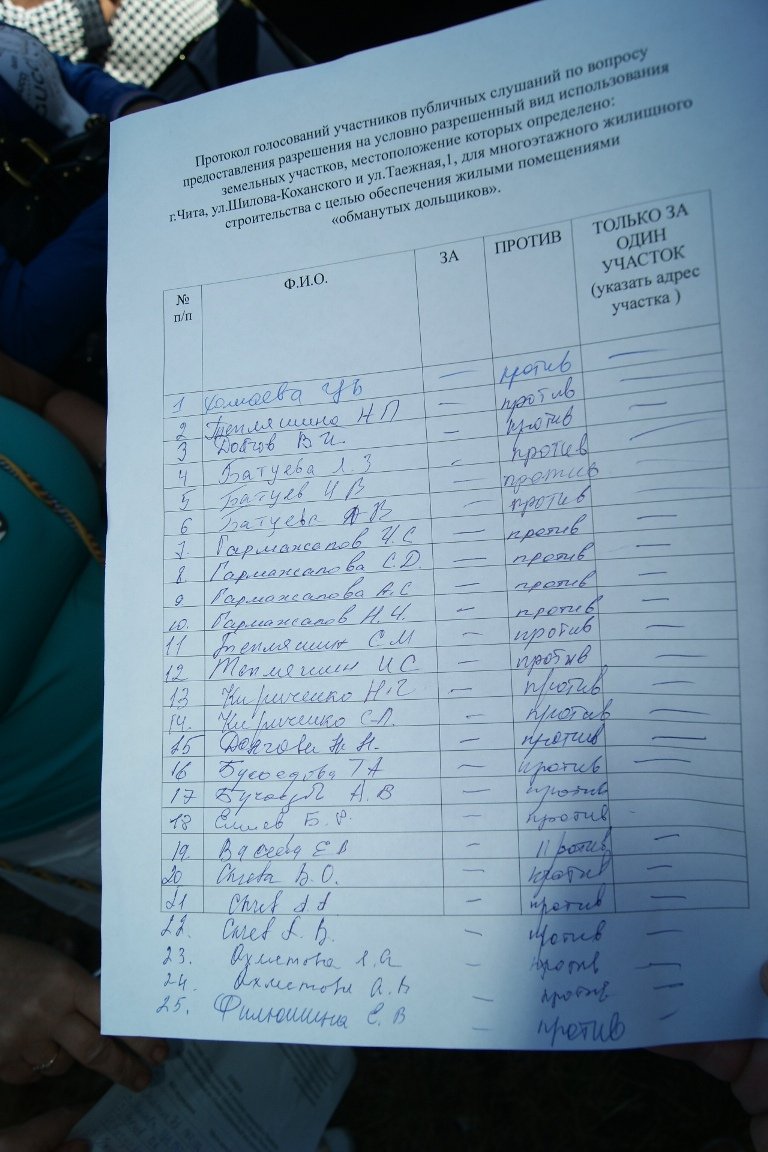 Протокол голосований участников публичных слушаний по вопросу
предоставления разрешения на условно разрешенный вид использования
земельных участков, местоположение которых определено:
г.Чита, ул.Шилова-Коханского и ул.Таежная,1, для многоэтажного жилищного
строительства с целью обеспечения жилыми помещениями
«обманутых дольщиков».
№ п/п Ф.И.О. ЗА ПРОТИВ ТОЛЬКО ЗА ОДИН УЧАСТОК (указать адрес участка )
1 — против —
2 Тепляшина Н П — против —
3 В И. — против —
4 Батуева Л. З — против —
5 Батуев Ч В — против
6 Батуева А В — против
7. Гармажапов Ч. С — против —
8. Гармажапова С. Д. — против —
9 Гармажапова А. С — против —
10. Гармажапов Н. Ч. — против —
11 Тепляшин С. М — против —
12 Тепляшин И С. — против —
13 Кириченко Н. Г — против —
14. Кириченко С. Л. — против —
15 Долгова Н. Н. — против —
16 Т А — против —
17 А. В — против
18 Б. Р. — против
19. Е В — против —
20 В. О. — против —
21 — против —
22. В. — против —
23. Ахметова Л. А — против —
24. Ахметова А. А — против —
25. Филюшина Е. В — против —